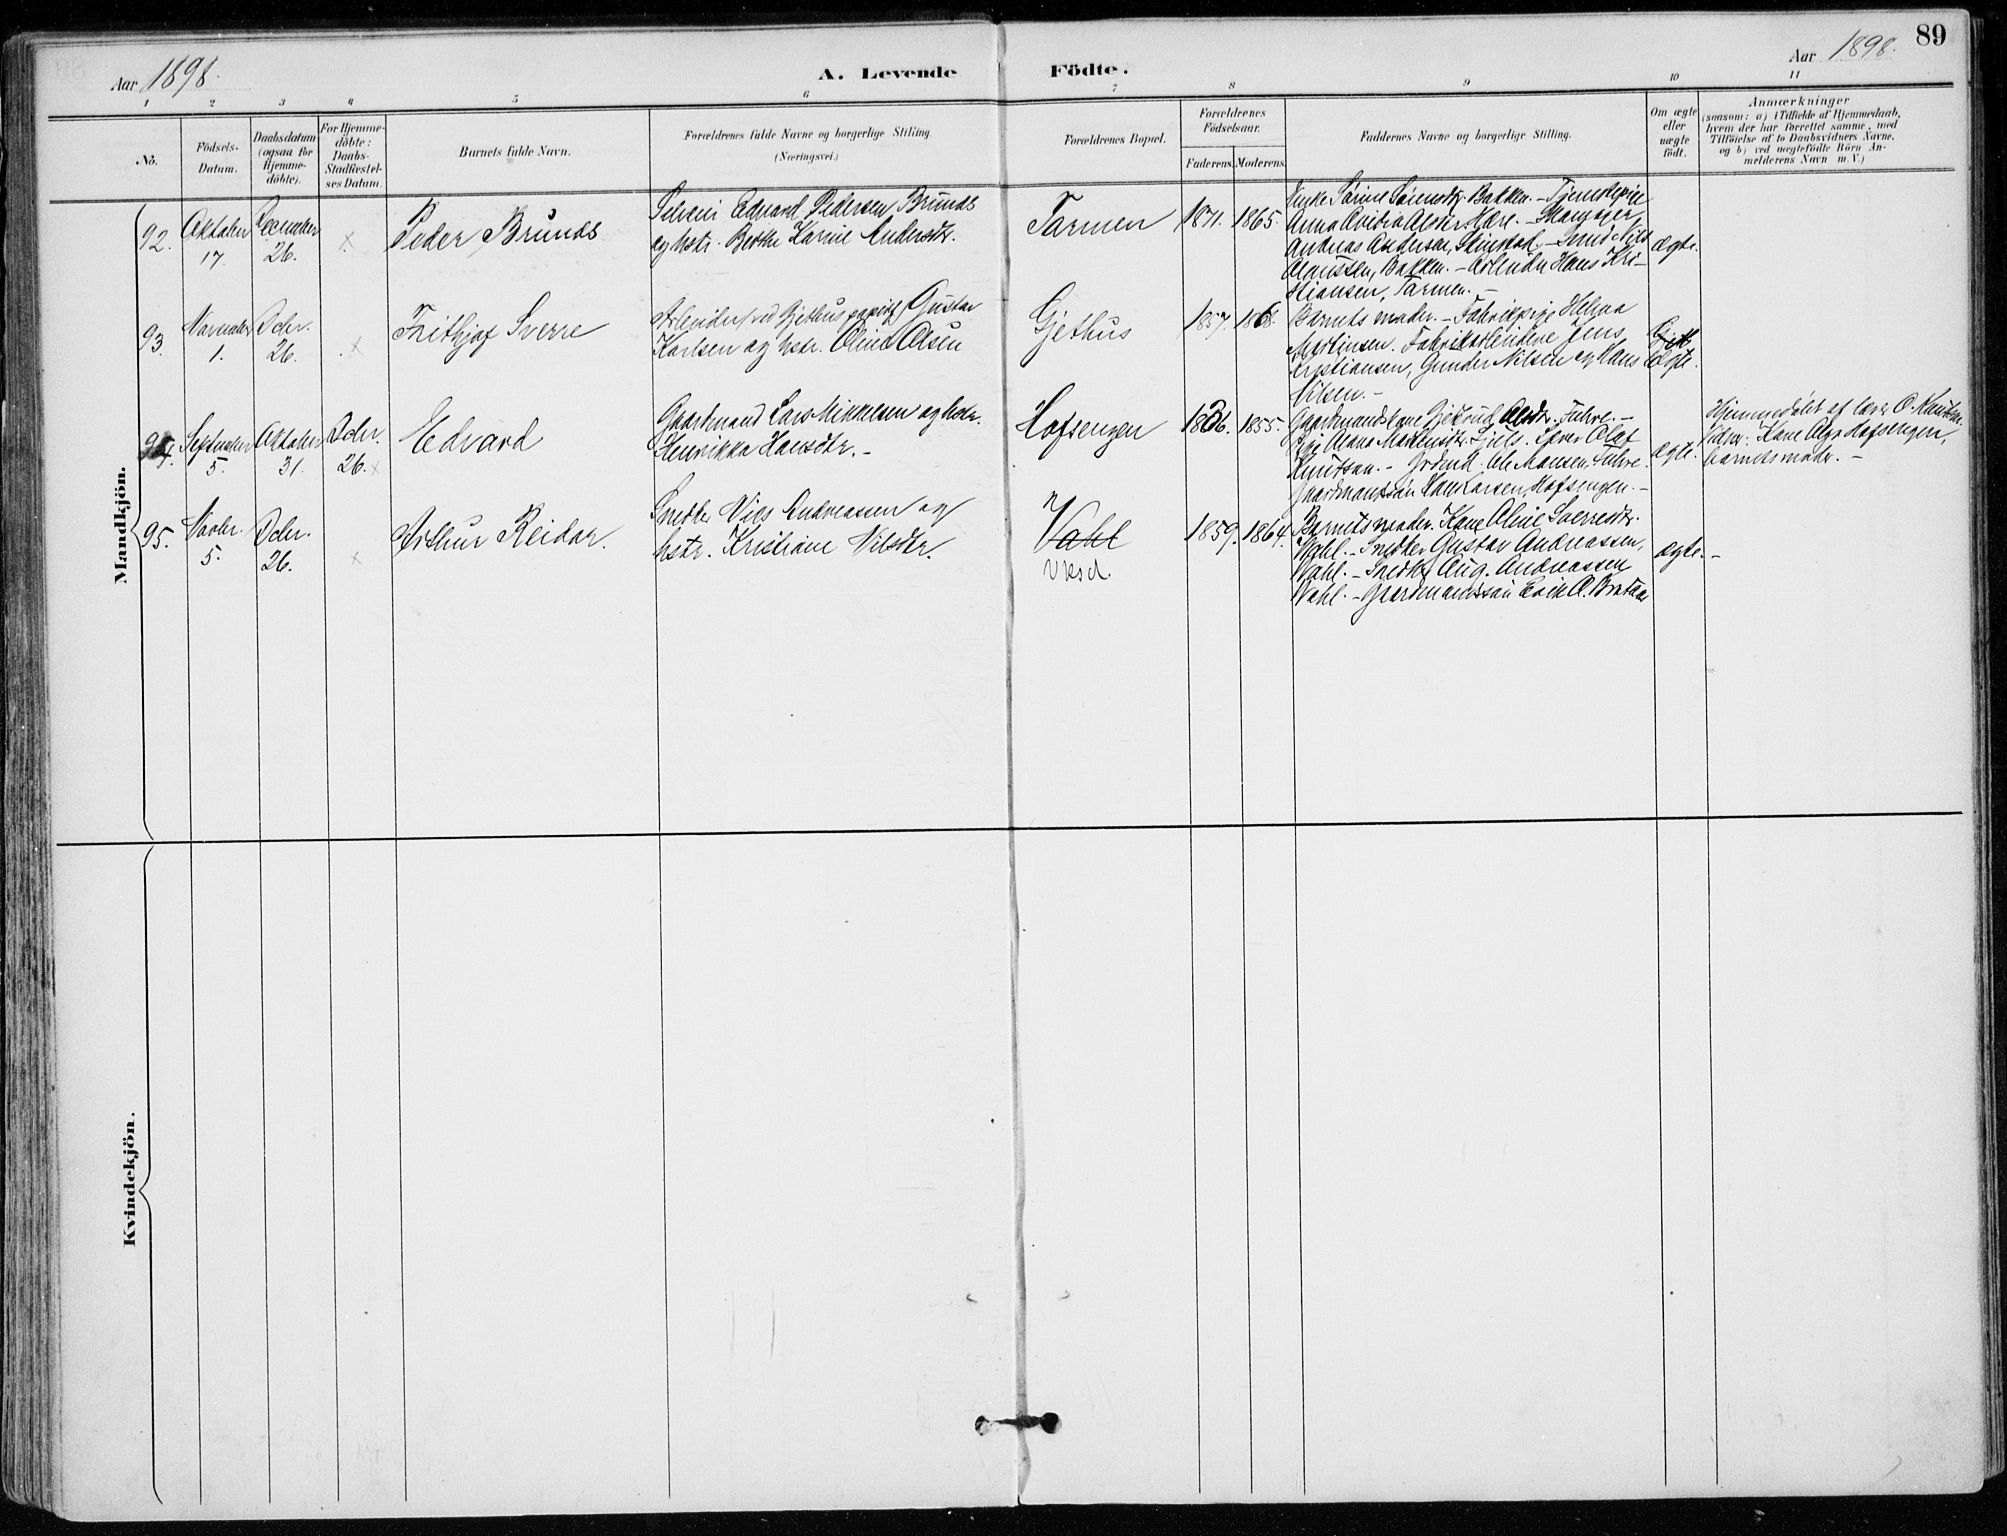 89
Aar 1898.
A. Levende Födte.
Aar 1898.
1 2 3 4 5 6 7 8 9 10 11
No.
Födsels-
Datum.
Daabsdatum
(ogsaa for
Hjemme-
döbte).
For Hjemme-
döbte:
Daabs-
Stadfæstel-
ses Datum.
Barnets fulde Navn.
Forældrenes fulde Navne og borgerlige Stilling.
(Næringsvei.)
Forældrenes Bopæl.
Forældrenes
Födselsaar.
Faderens. Moderens.
Faddernes Navne og borgerlige Stilling.
Om ægte
eller
uægte
födt.
Anmærkninger
(saasom: a) i Tilfælde af Hjemmedaab,
hvem der har forrettet samme, med
Tilföielse af to Daabsvidners Navne,
og b) ved uægtefödte Börn An-
melderens Navn m. V.)
Mandkjön.
92.
Oktober
17.
December
26.
x
Peder Brunæs
Edvard Pedersen Brunæs
og hstr. Berthe Karine Andersdtr.
Tarmen
1871. 1865.
Enke Sörine Bakken. – Tjenestepige
Anna
Andreas Andersen, – Smed Nils
Claussen, Bakken. – Arbeider Hans Kri-
stiansen, Tarmen. –
ægte.
93.
November
1.
Dcbr.
26.
x
Frithjof Sverre
Arbeider ved Gjethus Gustav
Karlsen og hstr. Oline Olsen
Gjethus
1857. 1868.
Barnets moder. – Fabrikpige Helena
Martinsen. Fabrikarbeidere Jens
Kristiansen, Gunder Nilsen og Hans
Nilsen. –
ægte.
94.
September
5.
Oktober
31.
Dcbr.
26. x
Edvard
Gaardmand Lars Mikkelsen og hstr.
Henrikka Hansdtr. –
Hofsengen
1836. 1855.
Gaardmandskone Gjertrud Olsdtr. Fuhre. –
Olaf
Knudsen. – Ole Hansen, Fuhre.
Gaardmandssön Larsen, Hofsengen. –
ægte.
Hjemmedöbt af lærer O. Knudsen.
Kone Hofsengen,
barnets moder. –
95.
Novbr.
5.
Dcbr.
26.
x
Arthur Reidar.
Snedker Nils Andreassen og
hstr. Kristiane Nilsdtr.
Vahl
1859. 1864.
Barnets moder. Kone Oline Sverresdtr.
Wahl. – Snedker Gustav Andreassen,
Wahl. – Snedker Aug. Andreassen
Wahl. – Gaardmandssön Erik O.
ægte. –
Kvindekjön.